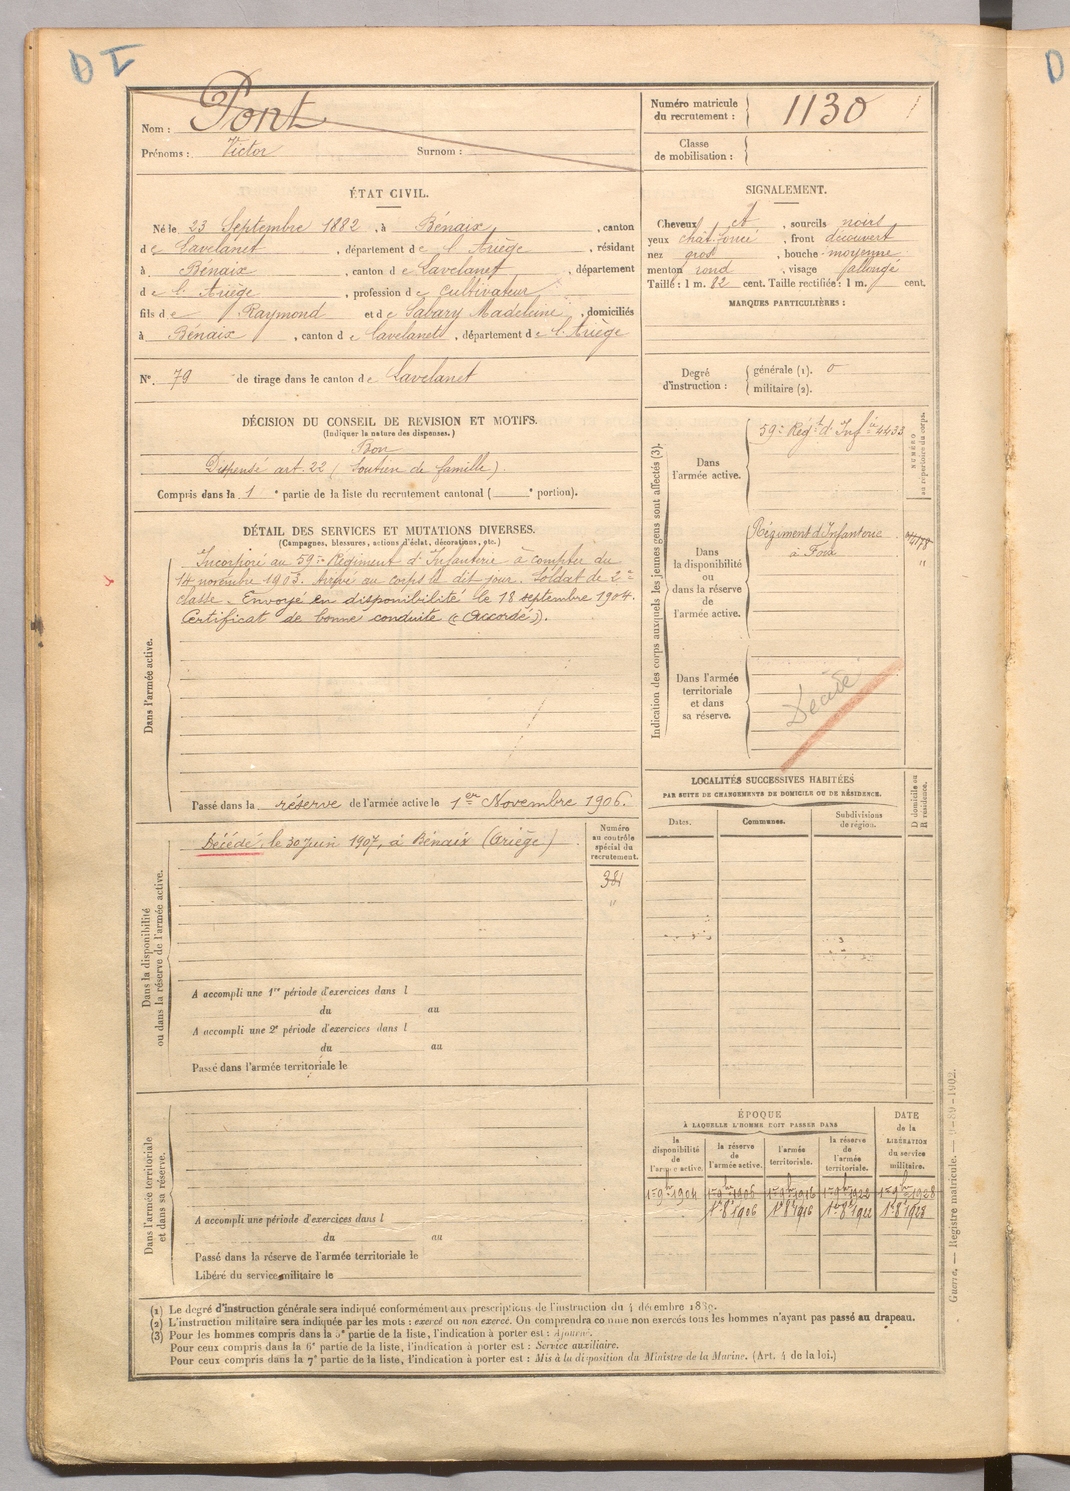 D I
Nom : Pont
Prénoms : Victor Surnom :
Numéro matricule du recrutement : 1130
Classe de mobilisation :
ÉTAT CIVIL.
Né le 23 Septembre 1882, à Bénaix, canton
de Lavelanet, département de l'Ariège, résidant
à Bénaix, canton de Lavelanet, département
de l'Ariège, profession de Cultivateur
fils de Raymond et de Sabary Madeleine, domiciliés
à Bénaix, canton de Lavelanet, département de l'Ariège
N° 79 de tirage dans le canton de Lavelanet
SIGNALEMENT.
Cheveux et, sourcils noirs
yeux chât. foncé, front découvert
nez gros, bouche moyenne
menton rond, visage allongé
Taille : 1 m. 82 cent. Taille rectifiée : 1 m. cent.
MARQUES PARTICULIÈRES :
Degré d'instruction : générale (1). 0
militaire (2).
DÉCISION DU CONSEIL DE REVISION ET MOTIFS.
(Indiquer la nature des dispenses.)
Bon
Dispensé art. 22 (Soutien de famille).
Compris dans la 1e partie de la liste du recrutement cantonal ( e portion).
DÉTAIL DES SERVICES ET MUTATIONS DIVERSES.
(Campagnes, blessures, actions d'éclat, décorations, etc.)
Dans l'armée active.
Incorporé au 59e Régiment d'Infanterie à compter du
14 novembre 1903. Arrivé au corps le dit jour. Soldat de 2e
classe. Envoyé en disponibilité le 18 septembre 1904.
Certificat de bonne conduite "Accordé".
Passé dans la réserve de l'armée active le 1er Novembre 1906.
Indication des corps auxquels les jeunes gens sont affectés (3).
NUMÉRO au répertoire du corps.
Dans l'armée active.
59e Régt d'Infie 4433
Dans la disponibilité ou dans la réserve de l'armée active.
Régiment d'Infanterie
à Foix
"
Dans l'armée territoriale et dans sa réserve.
Décédé
LOCALITÉS SUCCESSIVES HABITÉES
PAR SUITE DE CHANGEMENTS DE DOMICILE OU DE RÉSIDENCE.
Dates. Communes. Subdivisions de région. D domicile ou R résidence.
Dans la disponibilité ou dans la réserve de l'armée active.
Décédé le 30 Juin 1907, à Bénaix (Ariège)
Numéro au contrôle spécial du recrutement.
381
"
A accompli une 1re période d'exercices dans l
du au
A accompli une 2e période d'exercices dans l
du au
Passé dans l'armée territoriale le
Dans l'armée territoriale et dans sa réserve.
A accompli une période d'exercices dans l
du au
Passé dans la réserve de l'armée territoriale le
Libéré du service militaire le
ÉPOQUE
À LAQUELLE L'HOMME DOIT PASSER DANS
DATE de la LIBÉRATION du service militaire.
la disponibilité de l'armée active. la réserve de l'armée active. l'armée territoriale. la réserve de l'armée territoriale.
1er 9bre 1904 1er 9bre 1906 1er 9bre 1916 1er 9bre 1922 1er 9bre 1928
1er 8e 1906 1er 8e 1916 1er 8e 1922 1er 8e 1928
(1) Le degré d'instruction générale sera indiqué conformément aux prescriptions de l'instruction du 4 décembre 1889.
(2) L'instruction militaire sera indiquée par les mots : exercé ou non exercé. On comprendra comme non exercés tous les hommes n'ayant pas passé au drapeau.
(3) Pour les hommes compris dans la 5e partie de la liste, l'indication à porter est : Ajourné.
Pour ceux compris dans la 6e partie de la liste, l'indication à porter est : Service auxiliaire.
Pour ceux compris dans la 7e partie de la liste, l'indication à porter est : Mis à la disposition du Ministre de la Marine. (Art. 4 de la loi.)
Guerre. — Registre matricule. — 9-89-1902.
D